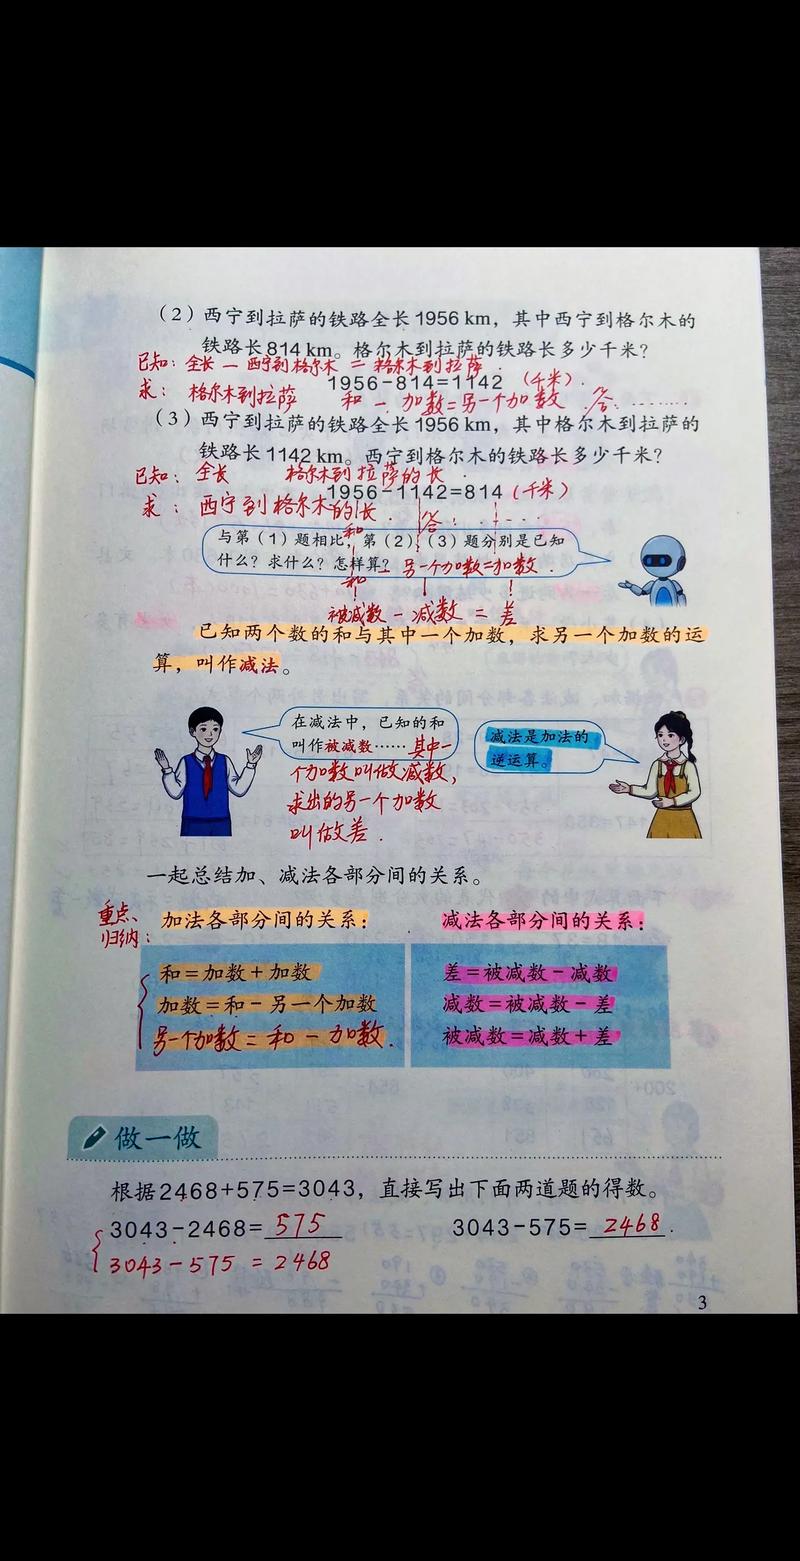 （2）西宁到拉萨的铁路全长1956 km，其中西宁到格尔木的
铁路长814 km。格尔木到拉萨的铁路长多少千米？
已知：全长 － 西宁到格尔木 ＝ 格尔木到拉萨.
1956－814＝1142 （千米）.
求：格尔木到拉萨 和 － 加数＝另一个加数. 答：………
（3）西宁到拉萨的铁路全长1956 km，其中格尔木到拉萨的
铁路长1142 km。西宁到格尔木的铁路长多少千米？
已知：全长 格尔木到拉萨的长.
1956－1142＝814（千米）
求：西宁到格尔木的长. 答：……
和
与第（1）题相比，第（2）（3）题分别是已知
什么？求什么？怎样算？
－另一个加数＝加数.
和
被减数 － 减数 ＝ 差
已知两个数的和与其中一个加数，求另一个加数的运
算，叫作减法。
在减法中，已知的和
叫作被减数……其中一
个加数叫做减数，
求出的另一个加数
叫做差.
减法是加法的
逆运算。
一起总结加、减法各部分间的关系。
重点、
归纳：
加法各部分间的关系：
和＝加数＋加数
加数＝和－另一个加数
另一个加数＝和－加数.
减法各部分间的关系：
差＝被减数－减数
减数＝被减数－差
被减数＝减数＋差
做一做
根据2468+575=3043，直接写出下面两道题的得数。
3043－2468＝575 3043－575＝2468.
3043－575＝2468
3